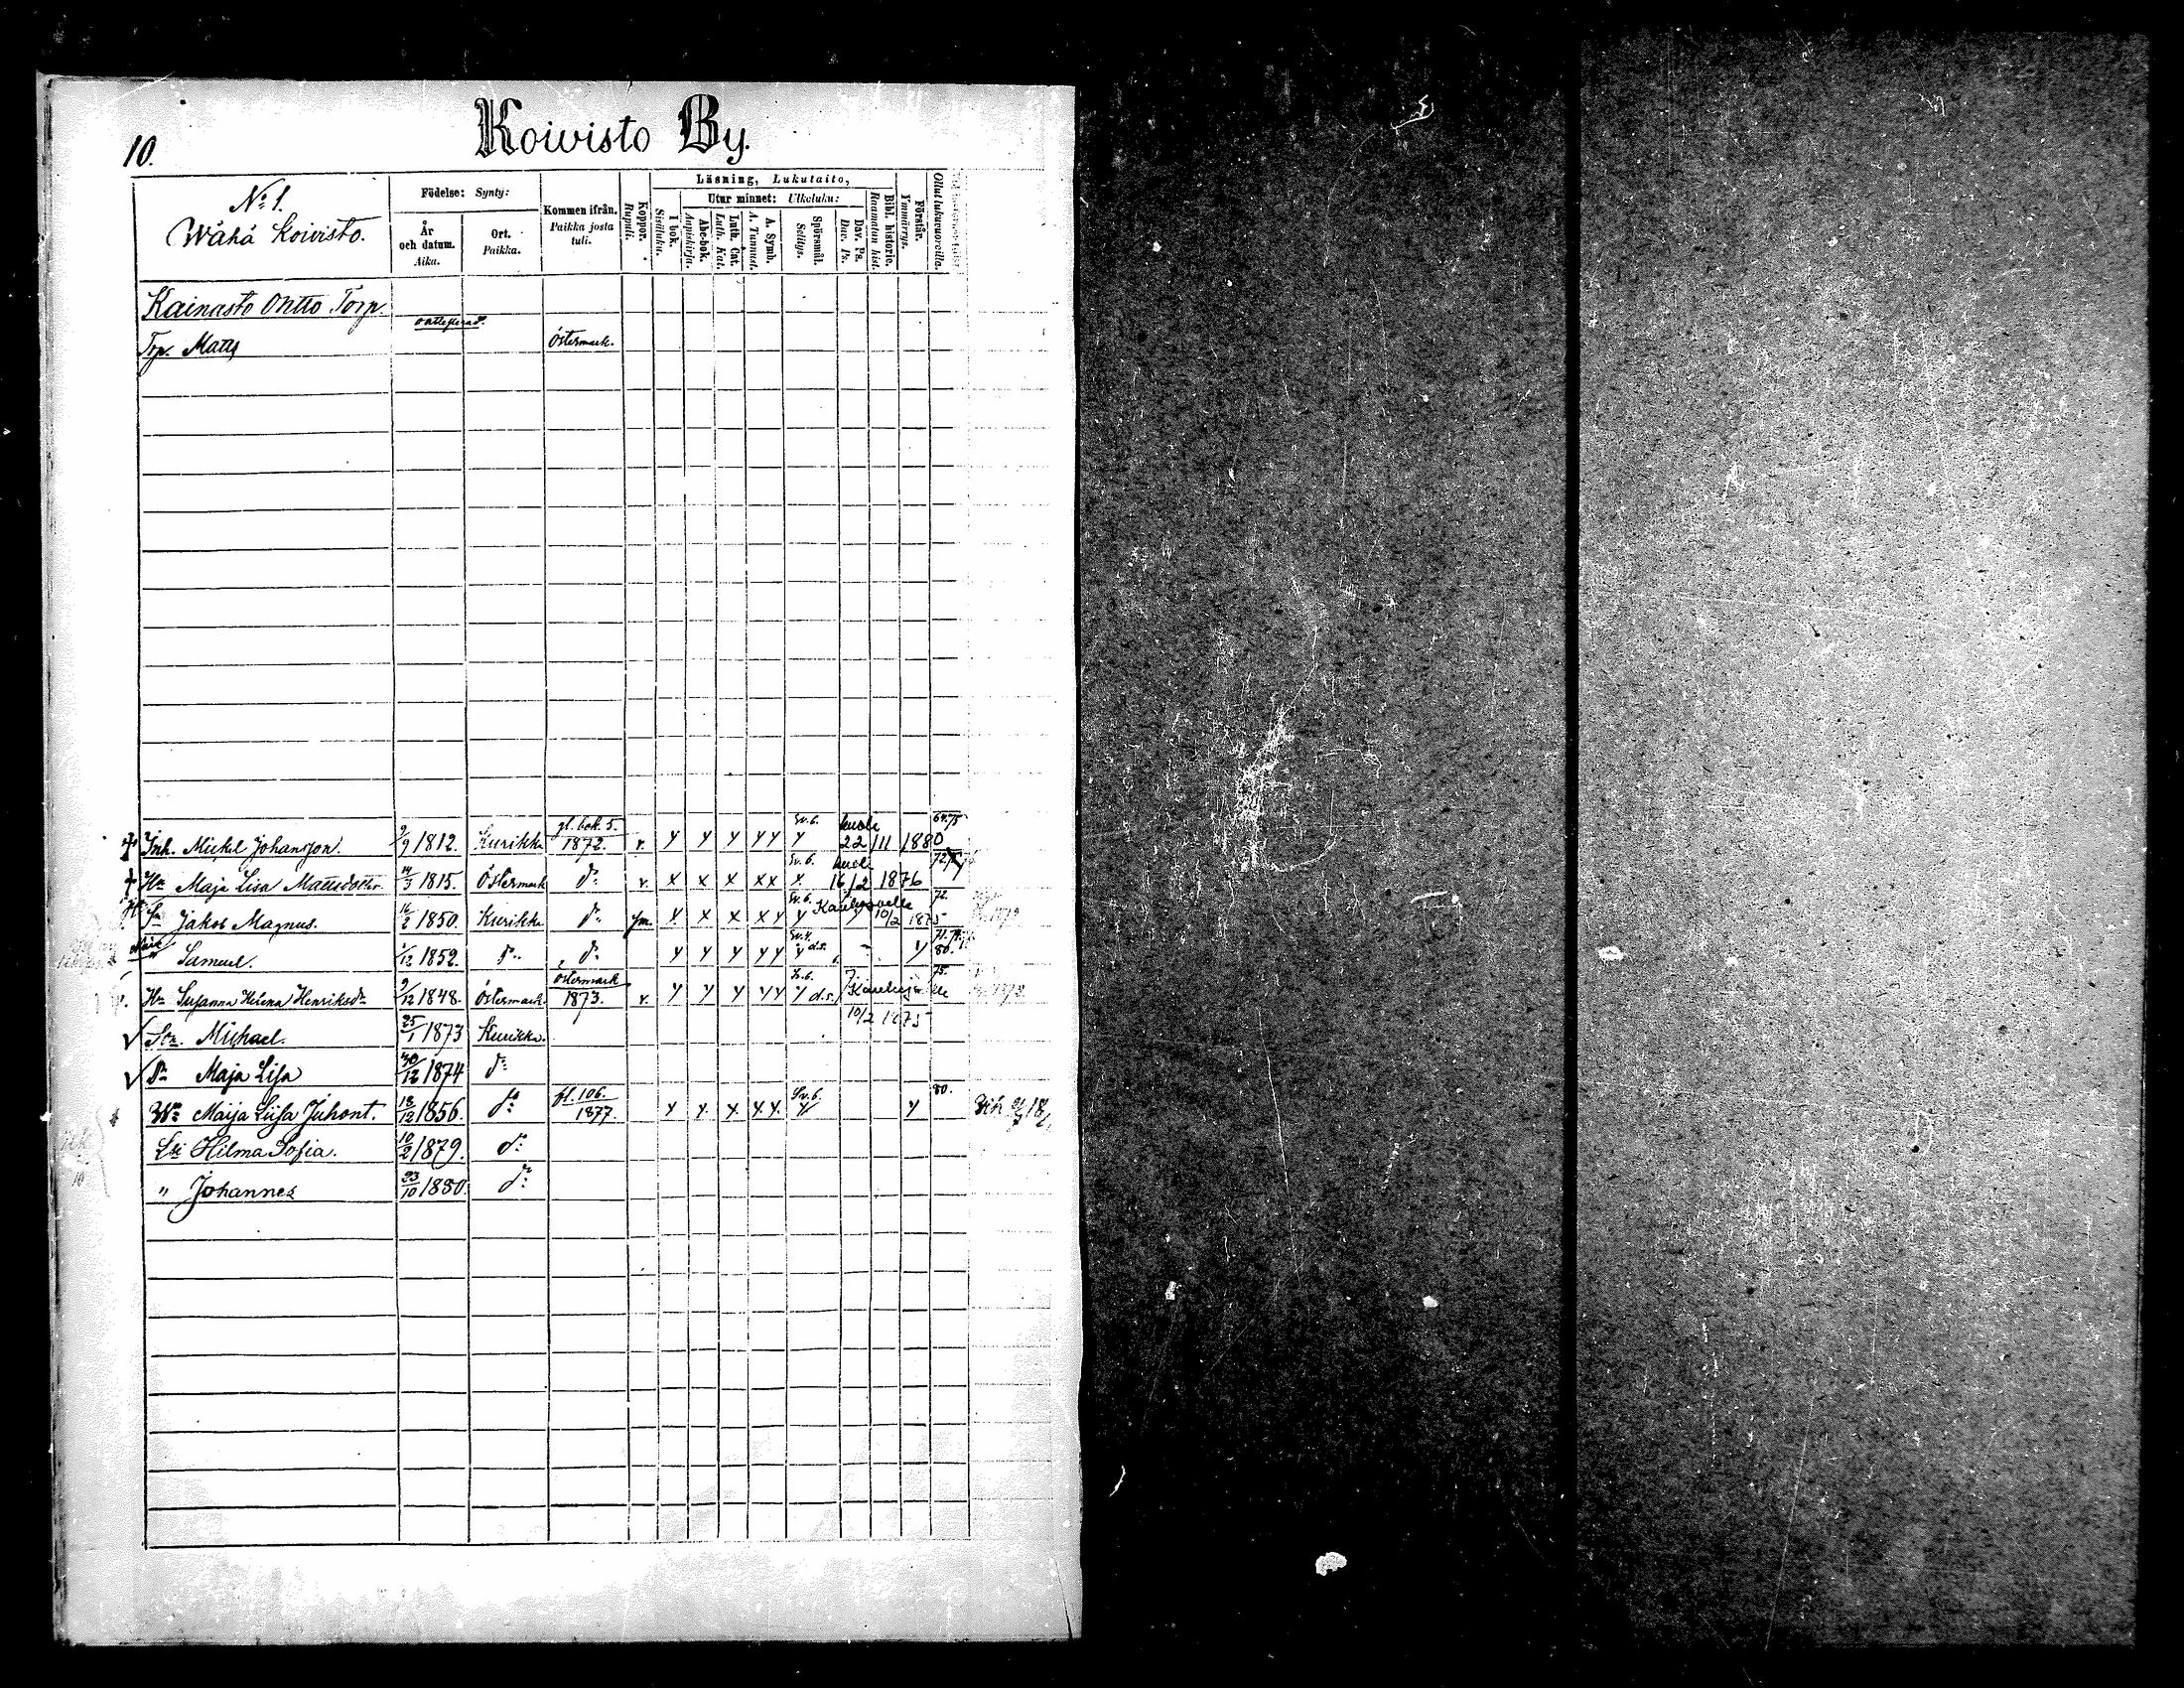 10.
Koivisto By.
No 1.
Wähä Koivisto.
Födelse: Synty:
År och datum. Aika.
Ort. Paikka.
Kommen ifrån. Paikka josta tuli.
Koppor. Rupuli.
Läsning, Lukutaito,
I bok. Sisäluku.
Utur minnet: Ulkoluku:
Abc-bok. Aapiskirja.
Luth. Cat. Luth. Kat.
A. Symb. A. Tunnust.
Spörsmål. Selitys.
Dav. Ps. Dav. Ps.
Bibl. historie. Raamatun hist.
Förstår. Ymmärrys.
Ollut lukuvuoroilla.
Kainasto Ontto Torp.
Torp. Matts Östermark.
gl. bok. 5. Sv. 6. kuoli 64.75
Inh. Mickel Johansson. 9/9 1812. Kurikka 1872. v. y y y y y y 22/11 1880
Sv. 6. kuoli 72
Hu Maja Lisa Mattsdotter 14/3 1815. Östermark do v. x x x x x x 16/2 1876
Sv. 6. Kauhajoelle 72.
Sn Jakob Magnus. 16/2 1850. Kurikka do x x x x y y 10/2 1875
Sv. 4.
Samuel. 1/12 1852. do do y y y y y y d.s. y 80.
Östermark Sv. 6. 75.
Hu Susanna Helena Henriksdr 9/12 1848. Östermark 1873. v. y y y y y y d.s. Kauhajoelle
10/2 1875
Sn. Michael. 25/1 1873 Kurikka.
Dr Maja Lisa 30/12 1874 do
fl. 106. Sv. 6. 80.
Wo Maija Liisa Juhont. 18/12 1856. do 1877. y y y y y y y
Lsi Hilma Sofia. 10/2 1879. do
" Johannes 23/10 1880. do